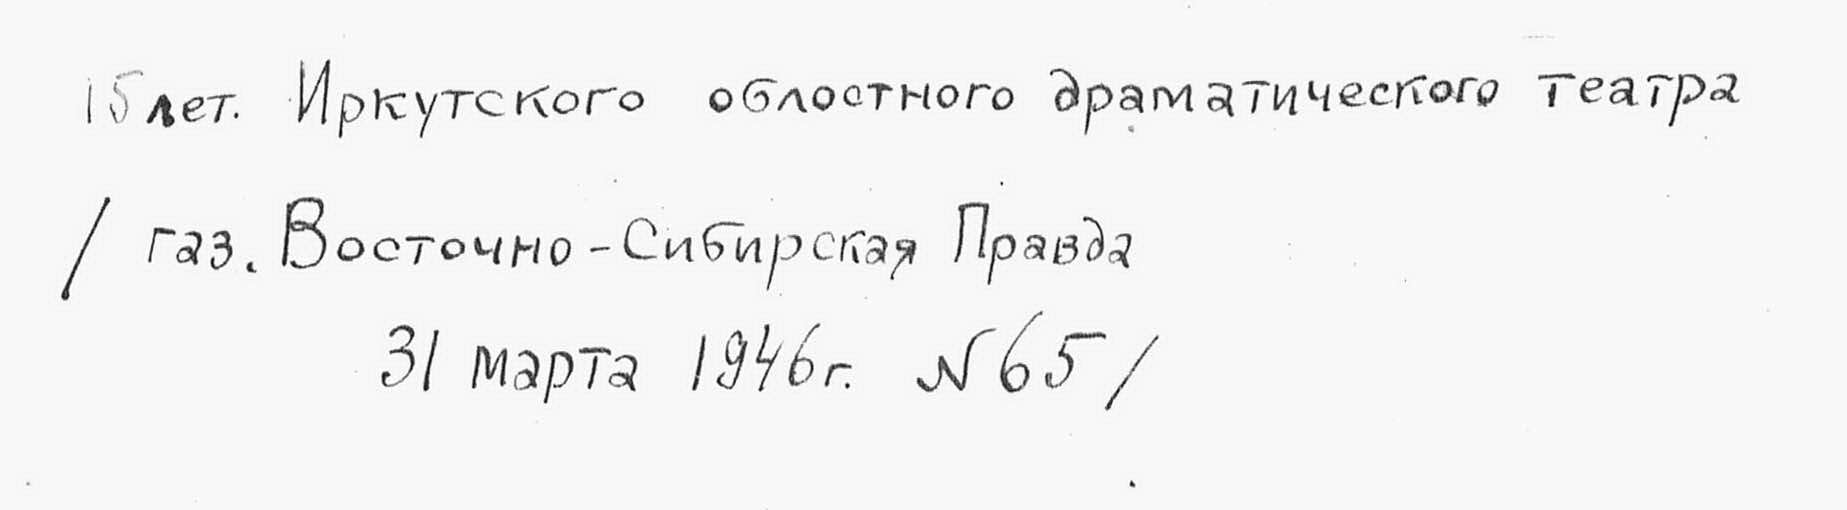 15 лет. Иркутского облостного драматического театра
/ газ. Восточно-Сибирская Правда
31 марта 1946г. № 65 /